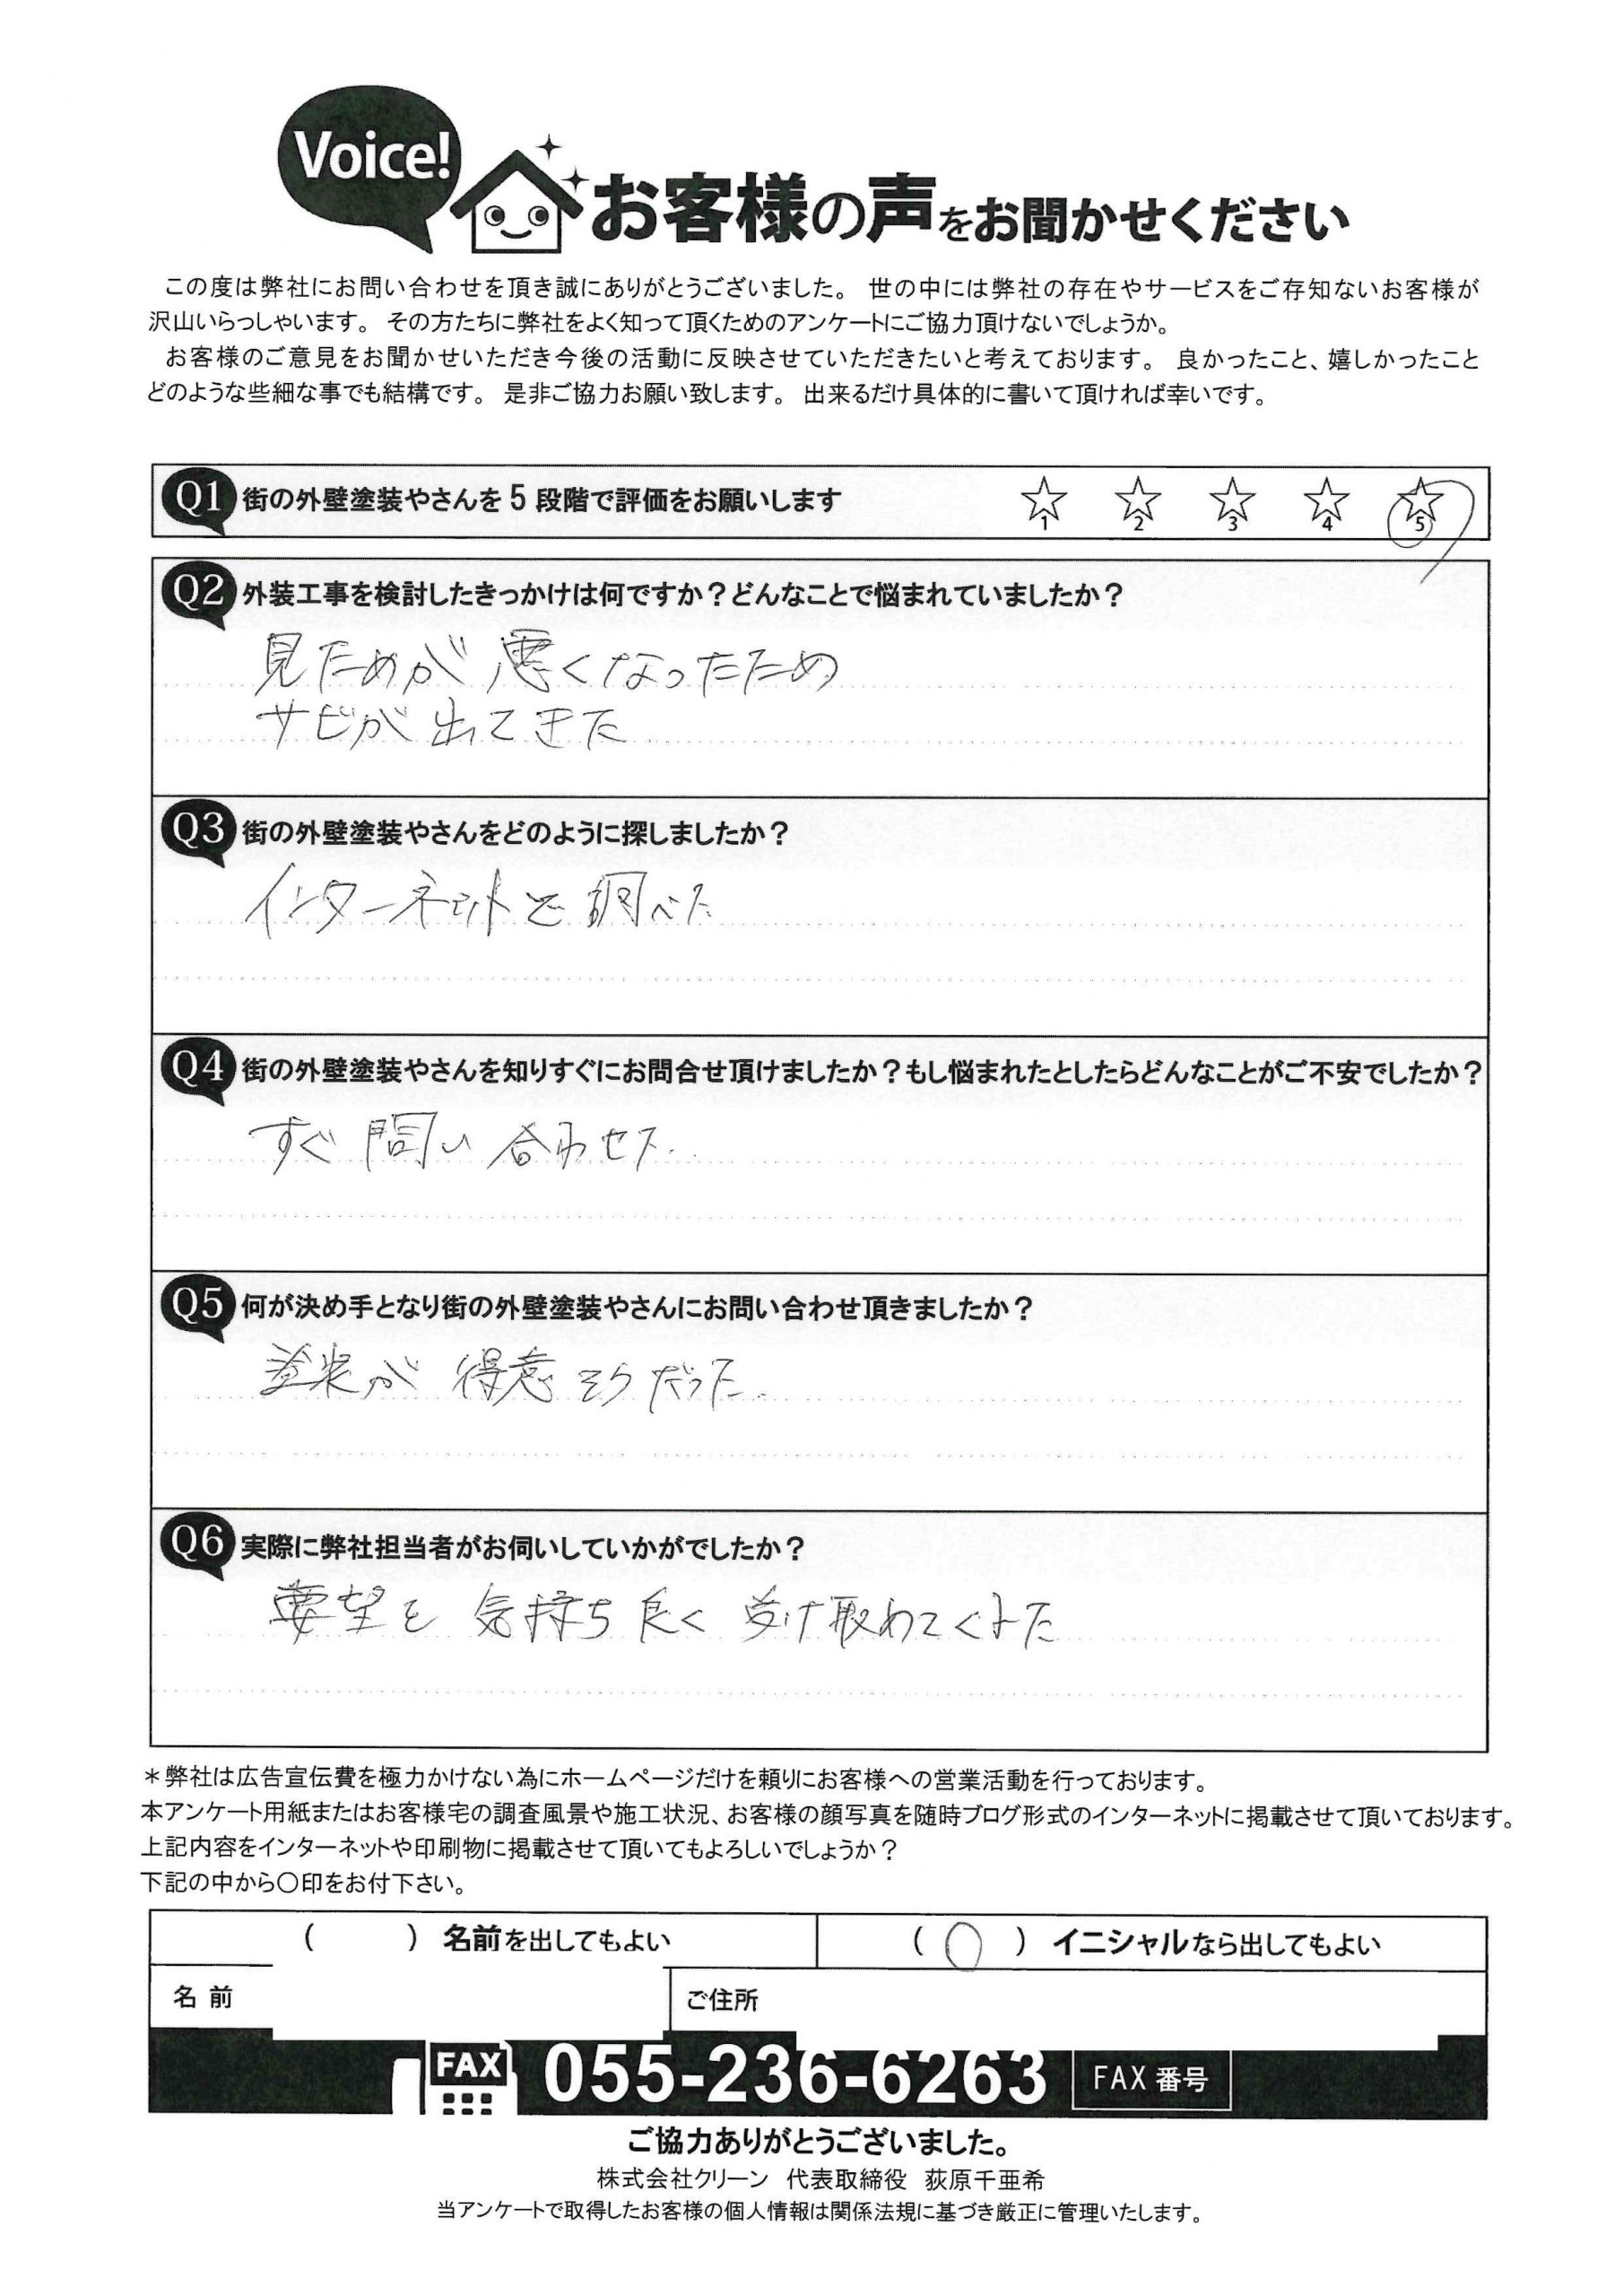 Voice!
お客様の声をお聞かせください
この度は弊社にお問い合わせを頂き誠にありがとうございました。 世の中には弊社の存在やサービスをご存知ないお客様が
沢山いらっしゃいます。 その方たちに弊社をよく知って頂くためのアンケートにご協力頂けないでしょうか。
お客様のご意見をお聞かせいただき今後の活動に反映させていただきたいと考えております。 良かったこと、嬉しかったこと
どのような些細な事でも結構です。 是非ご協力お願い致します。 出来るだけ具体的に書いて頂ければ幸いです。
Q1 街の外壁塗装やさんを5段階で評価をお願いします 1 2 3 4 5
Q2 外装工事を検討したきっかけは何ですか？どんなことで悩まれていましたか？
見ためが悪くなったため
サビが出てきた
Q3 街の外壁塗装やさんをどのように探しましたか？
インターネットで調べた
Q4 街の外壁塗装やさんを知りすぐにお問合せ頂けましたか？もし悩まれたとしたらどんなことがご不安でしたか？
すぐ問い合わせた
Q5 何が決め手となり街の外壁塗装やさんにお問い合わせ頂きましたか？
塗装が得意そうだった
Q6 実際に弊社担当者がお伺いしていかがでしたか？
要望を気持ち良く受け取めてくれた
＊弊社は広告宣伝費を極力かけない為にホームページだけを頼りにお客様への営業活動を行っております。
本アンケート用紙またはお客様宅の調査風景や施工状況、お客様の顔写真を随時ブログ形式のインターネットに掲載させて頂いております。
上記内容をインターネットや印刷物に掲載させて頂いてもよろしいでしょうか？
下記の中から〇印をお付下さい。
（ ）名前を出してもよい （〇）イニシャルなら出してもよい
名前 ご住所
FAX 055-236-6263 FAX 番号
ご協力ありがとうございました。
株式会社クリーン 代表取締役 荻原千亜希
当アンケートで取得したお客様の個人情報は関係法規に基づき厳正に管理いたします。